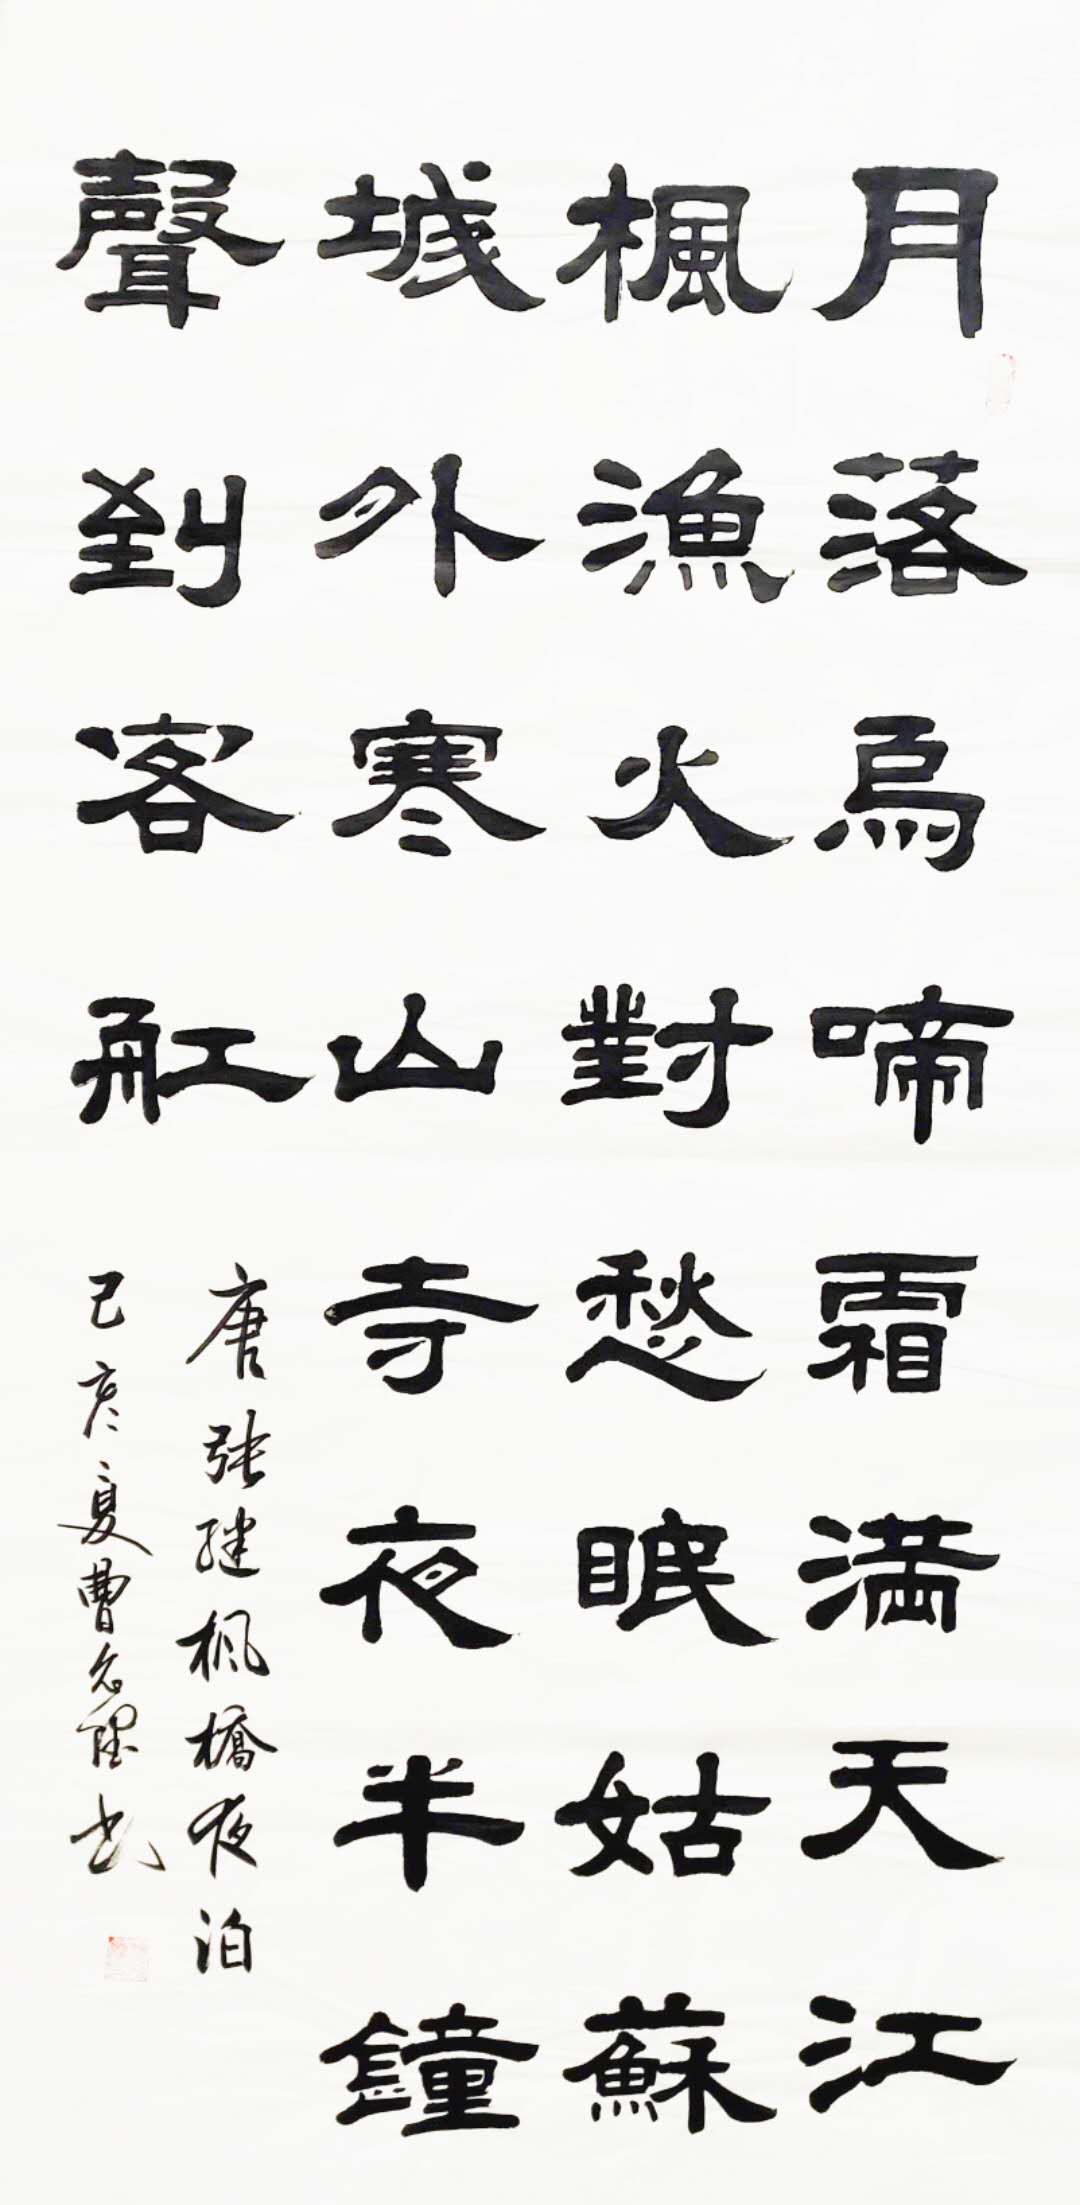 月落烏啼霜満天江
楓漁火對愁眠姑蘇
城外寒山寺夜半鐘
聲到客舡
唐張継枫橋夜泊
己亥夏曹名理书